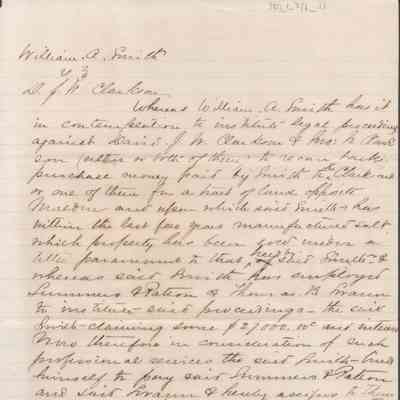 William. A. Smith
vs
D. & J. W. Clarkson
Whereas William. A. Smith has it
in contemplation to institute legal proceedings
against David & J. W. Clarkson & Mrs. N. Clark
son (either or both of them) to recover back
purchase money paid by Smith to Clarkson
or one of them for a tract of land opposite
Malden and upon which said Smith has
within the last few years manufactured salt
which property has been sold under a
title paramount to that held by Smith &
whereas said Smith has employed
Summers & Patton & Thomas B. Swann
to institute said proceedings – the said
Smith claiming some $27,000.00 and interest
Now therefore in consideration of such
professional services the said Smith binds
himself to pay said Summers & Patton
and said Swann & hereby assigns to them